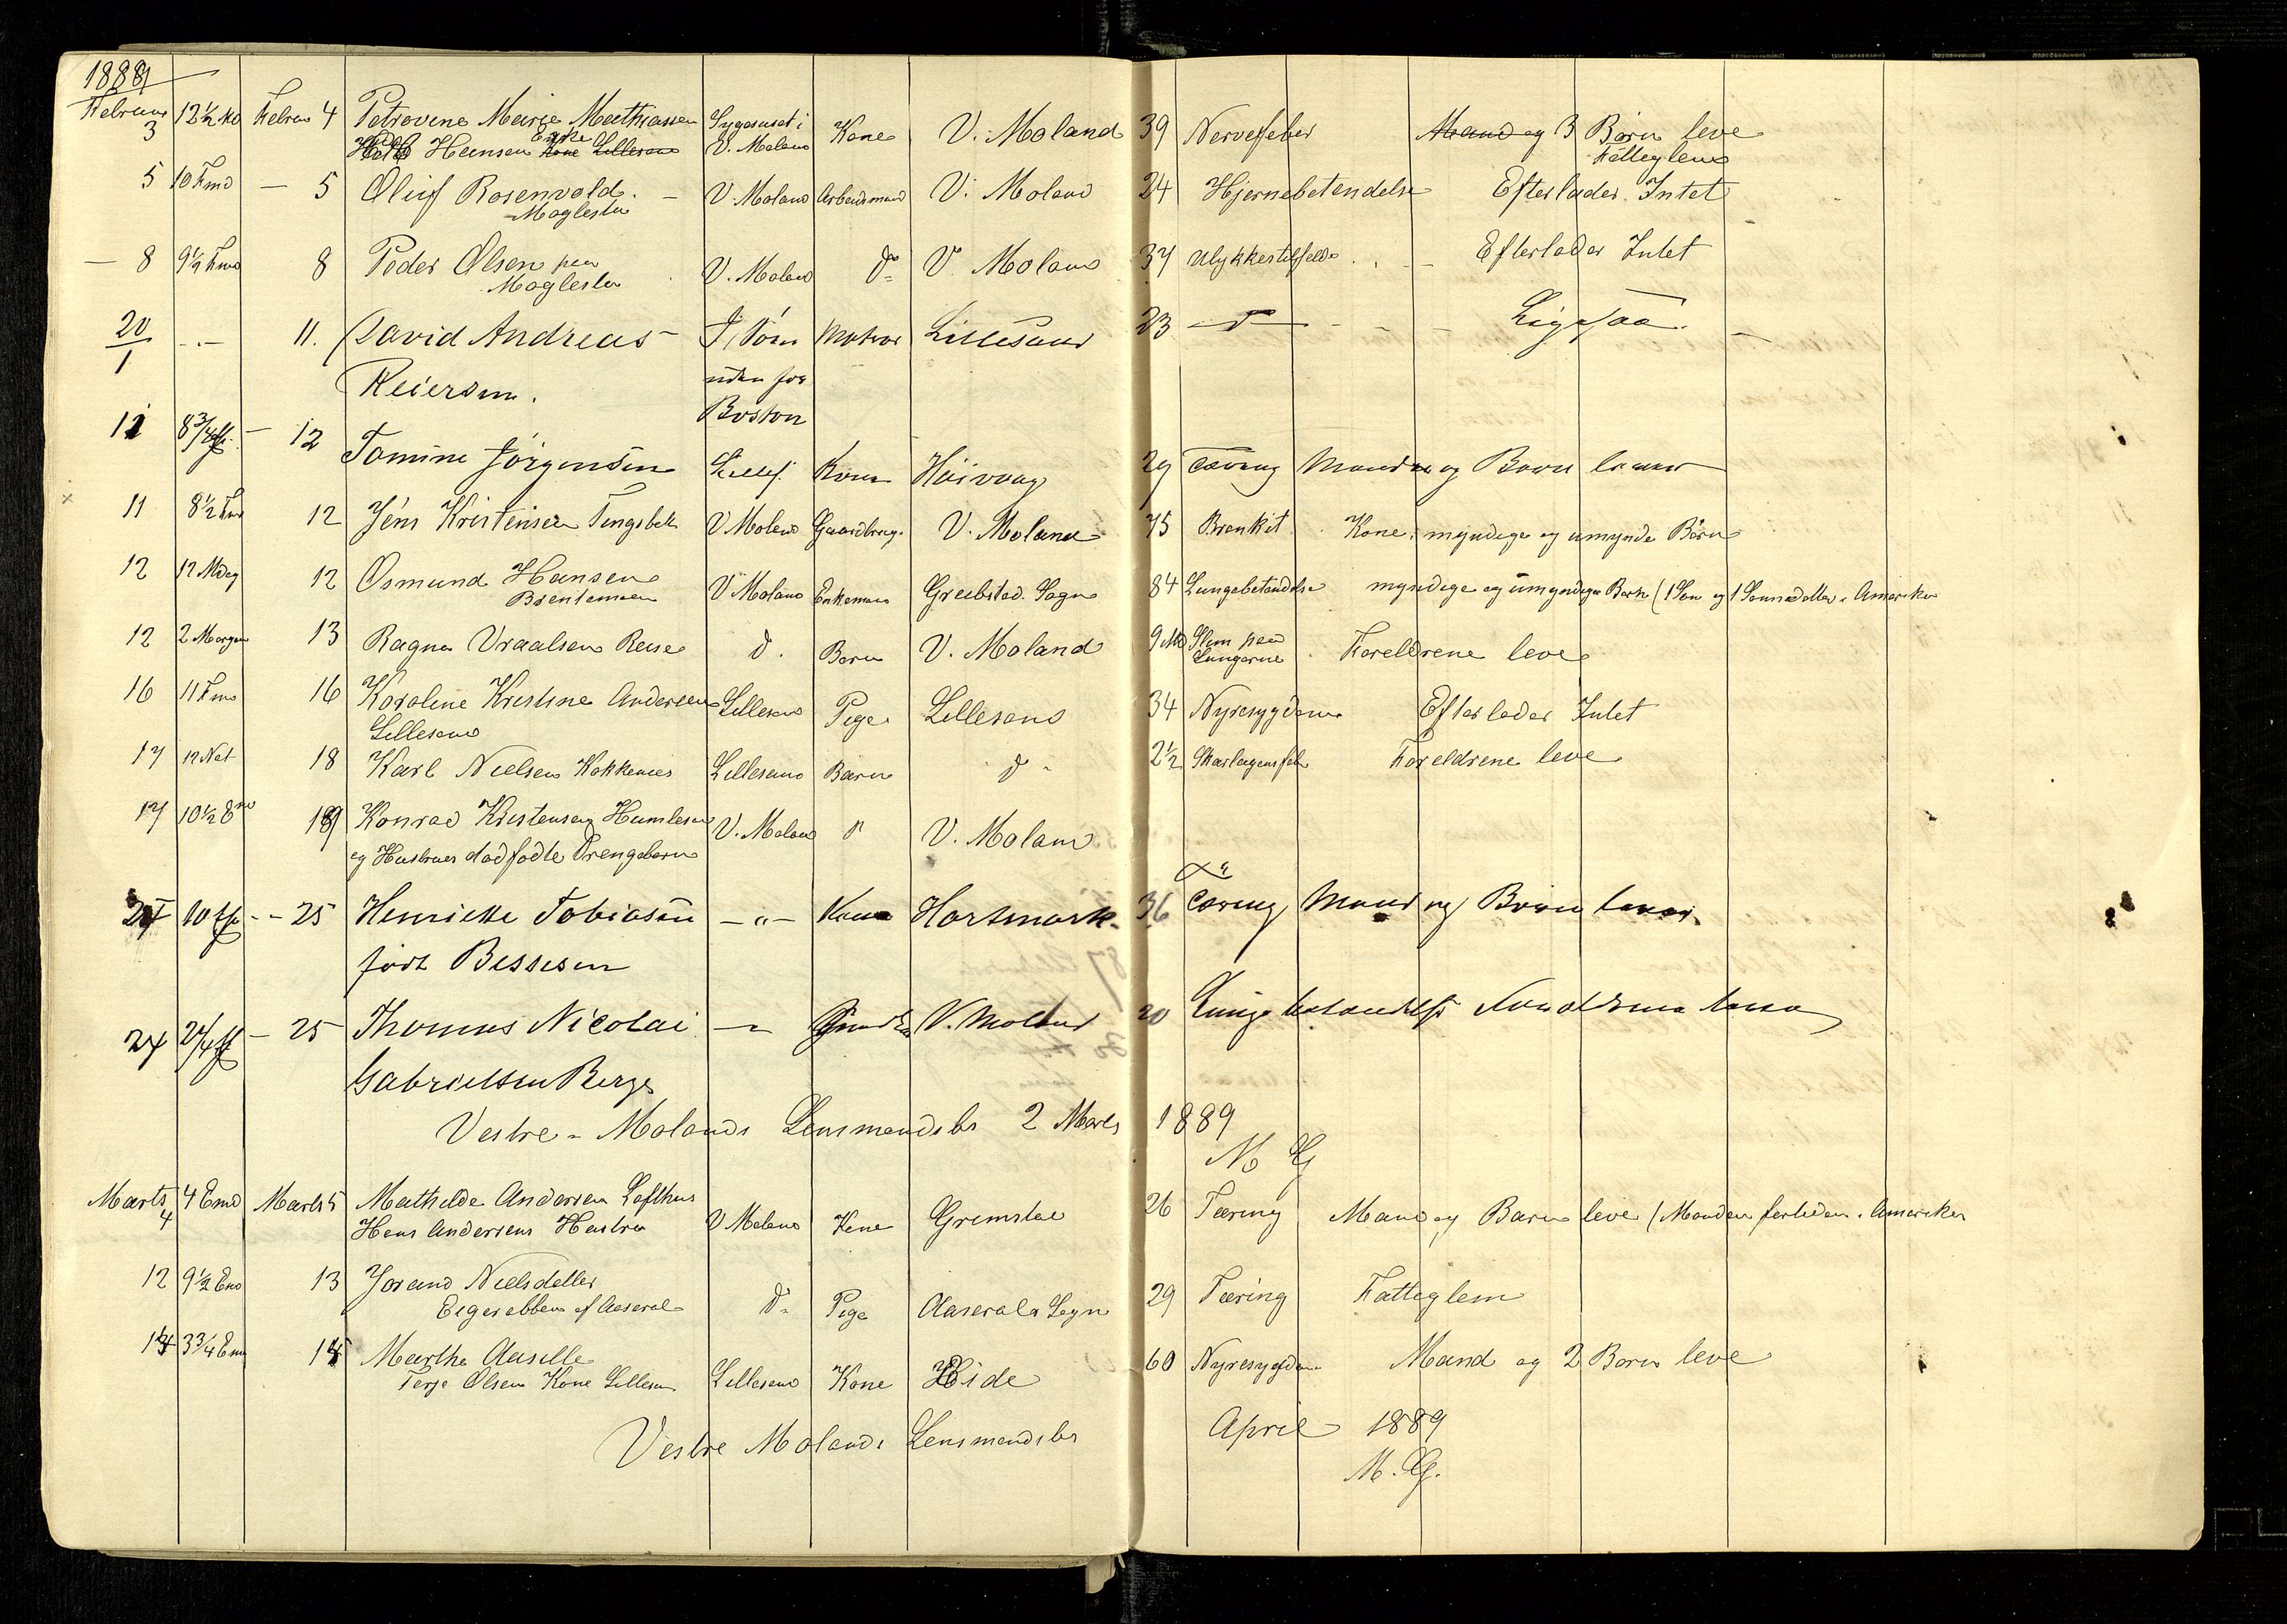 1889
Februar 3 12½ Md Februar 4 Petrovine Marie Mathiassen Sygehuset i V. Moland Kone V. Moland 39 Nervefeber Mand og 3 Børn leve
Hansen Enke Kone Lillesand Fattiglem
5 10 Fmd — 5 Oluf Rosenvold V. Moland Arbeidsmand V. Moland 24 Hjernebetendelse Efterlader Intet
Moglestu
— 8 9½ Fmd 8 Peder Olsen paa V. Moland do V. Moland 37 Ulykkestilfælde Efterlader Intet
Moglestu
20/1 -.- 11. David Andreas Matros Lillesand 23 do Ligesaa.
Reiersen. uden for
Boston
11 8¾ - 12 Tomine Jörgensen Lilles. Kone Höivaag 29 Tæring Mand og Barn lever
11 8½ Fmd 12 Jens Kristensen Tingsbek V. Moland Gaardbrug. V. Moland 75 Bronkit Kone, myndige og umynde Börn
12 12 Mdag 12 Osmund Hansen V. Moland Enkeman Sogn 84 Lungebetændelse myndige og umyndige Børn (1 Søn og 1 Sønnedatter i Amerika
12 2 Morgen 13 Ragna Vraalsen Reise d. Barn V. Moland 9 Md Slim paa Lungerne Foreldrene leve
16 11 Fmd 16 Karoline Kristine Andersen Lillesand Pige Lillesand 34 Nyresygdom Efterlader Intet
Lillesand
17 12 Nat 18 Karl Nielsen Kokkenes Lillesand Barn d - 2½ Skarlagensfeb Foreldrene leve
17 10½ 19 Konrad Kristensen V. Moland d V. Moland
og Hustrues dødfødte Drengebarn
24 10 - - 25 Henrikke Tobiasen - „ - Kone Hartmark. 36 Tæring Mand og Börn lever.
födt Bessesen
24 2/4 - 25 Thomas Nicolai — V. Moland 20 Lungebetændelse Forældrene leve
Gabrielsen Berge
Vestre - Molands Lensmandsbs 2 Marts 1889
M G
Marts 4 4 Emd Marts 5 Mathilde Andersen Lofthus V Moland Kone Grimstad 26 Tæring Mand og Barn leve (Manden fortiden i Amerika
Hans Andersens Hustru
12 9½ Emd 13 Jorand Nielsdatter d - Pige Aaserals Sogn 29 Tæring Fattiglem
af Aaseral
14 3¾ Em 15 Marthe Aasille Lillesand Kone Eide 60 Nyresygdom Mand og 2 Børn leve
Terje Olsens Kone Lillesand
Vestre Molands Lensmandsbs April 1889
M. G.